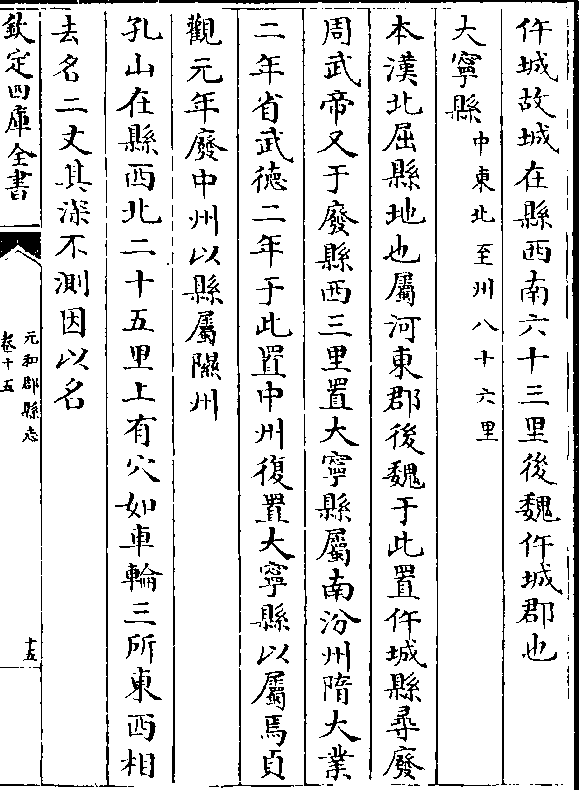 仵城故城在縣西南六十三里後魏仵城郡也
大寧縣中東北至州八十六里
本漢北屈縣地也屬河東郡後魏于此置仵城縣尋廢
周武帝又于廢縣西三里置大寧縣屬南汾州隋大業
二年省武徳二年于此置中州復置大寧縣以屬焉貞
觀元年廢中州以縣屬隰州
孔山在縣西北二十五里上有穴如車輪三所東西相
去名二丈其深不測因以名
欽定四庫全書
元和郡縣志
卷十五
十五